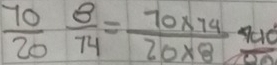 70/20 8/74 = 70×74/20×8